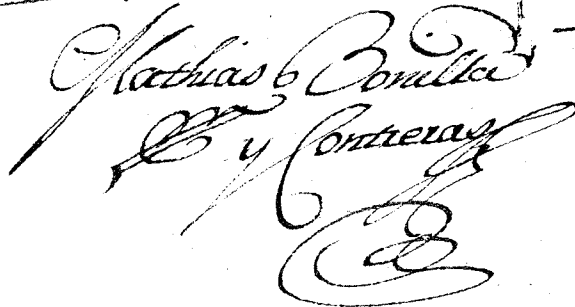 Mathias Bonilla
y Contreras